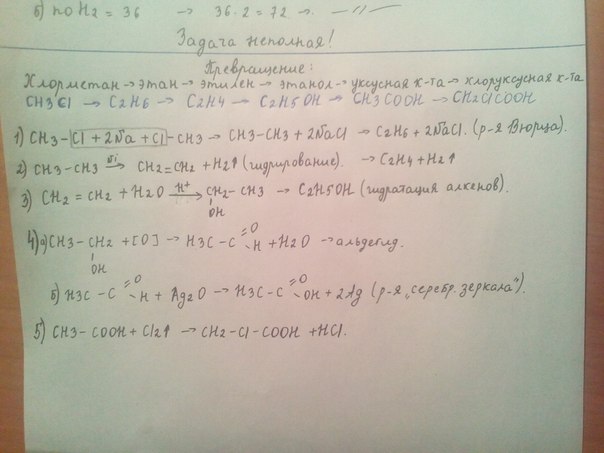 б) по H2 = 36 → 36·2 = 72 →
Задача неполная!
Превращение:
Хлорметан → этан → этилен → этанол → уксусная к-та → хлоруксусная к-та
CH3Cl → C2H6 → C2H4 → C2H5OH → CH3COOH → CH2ClCOOH
1) CH3-Cl + 2Na + Cl-CH3 → CH3-CH3 + 2NaCl → C2H6 + 2NaCl. (р-я Вюрца).
2) CH3-CH3 Ni→ CH2=CH2 + H2↑ (гидрирование). → C2H4 + H2↑
3) CH2=CH2 + H2O H+→ CH2-CH3 → C2H5OH (гидратация алкенов).
OH
4) а) CH3-CH2 + [O] → H3C-C =O H + H2O → альдегид.
OH
б) H3C-C =O H + Ag2O → H3C-C =O OH + 2Ag (р-я „серебр. зеркала").
5) CH3-COOH + Cl2↑ → CH2-Cl-COOH + HCl.